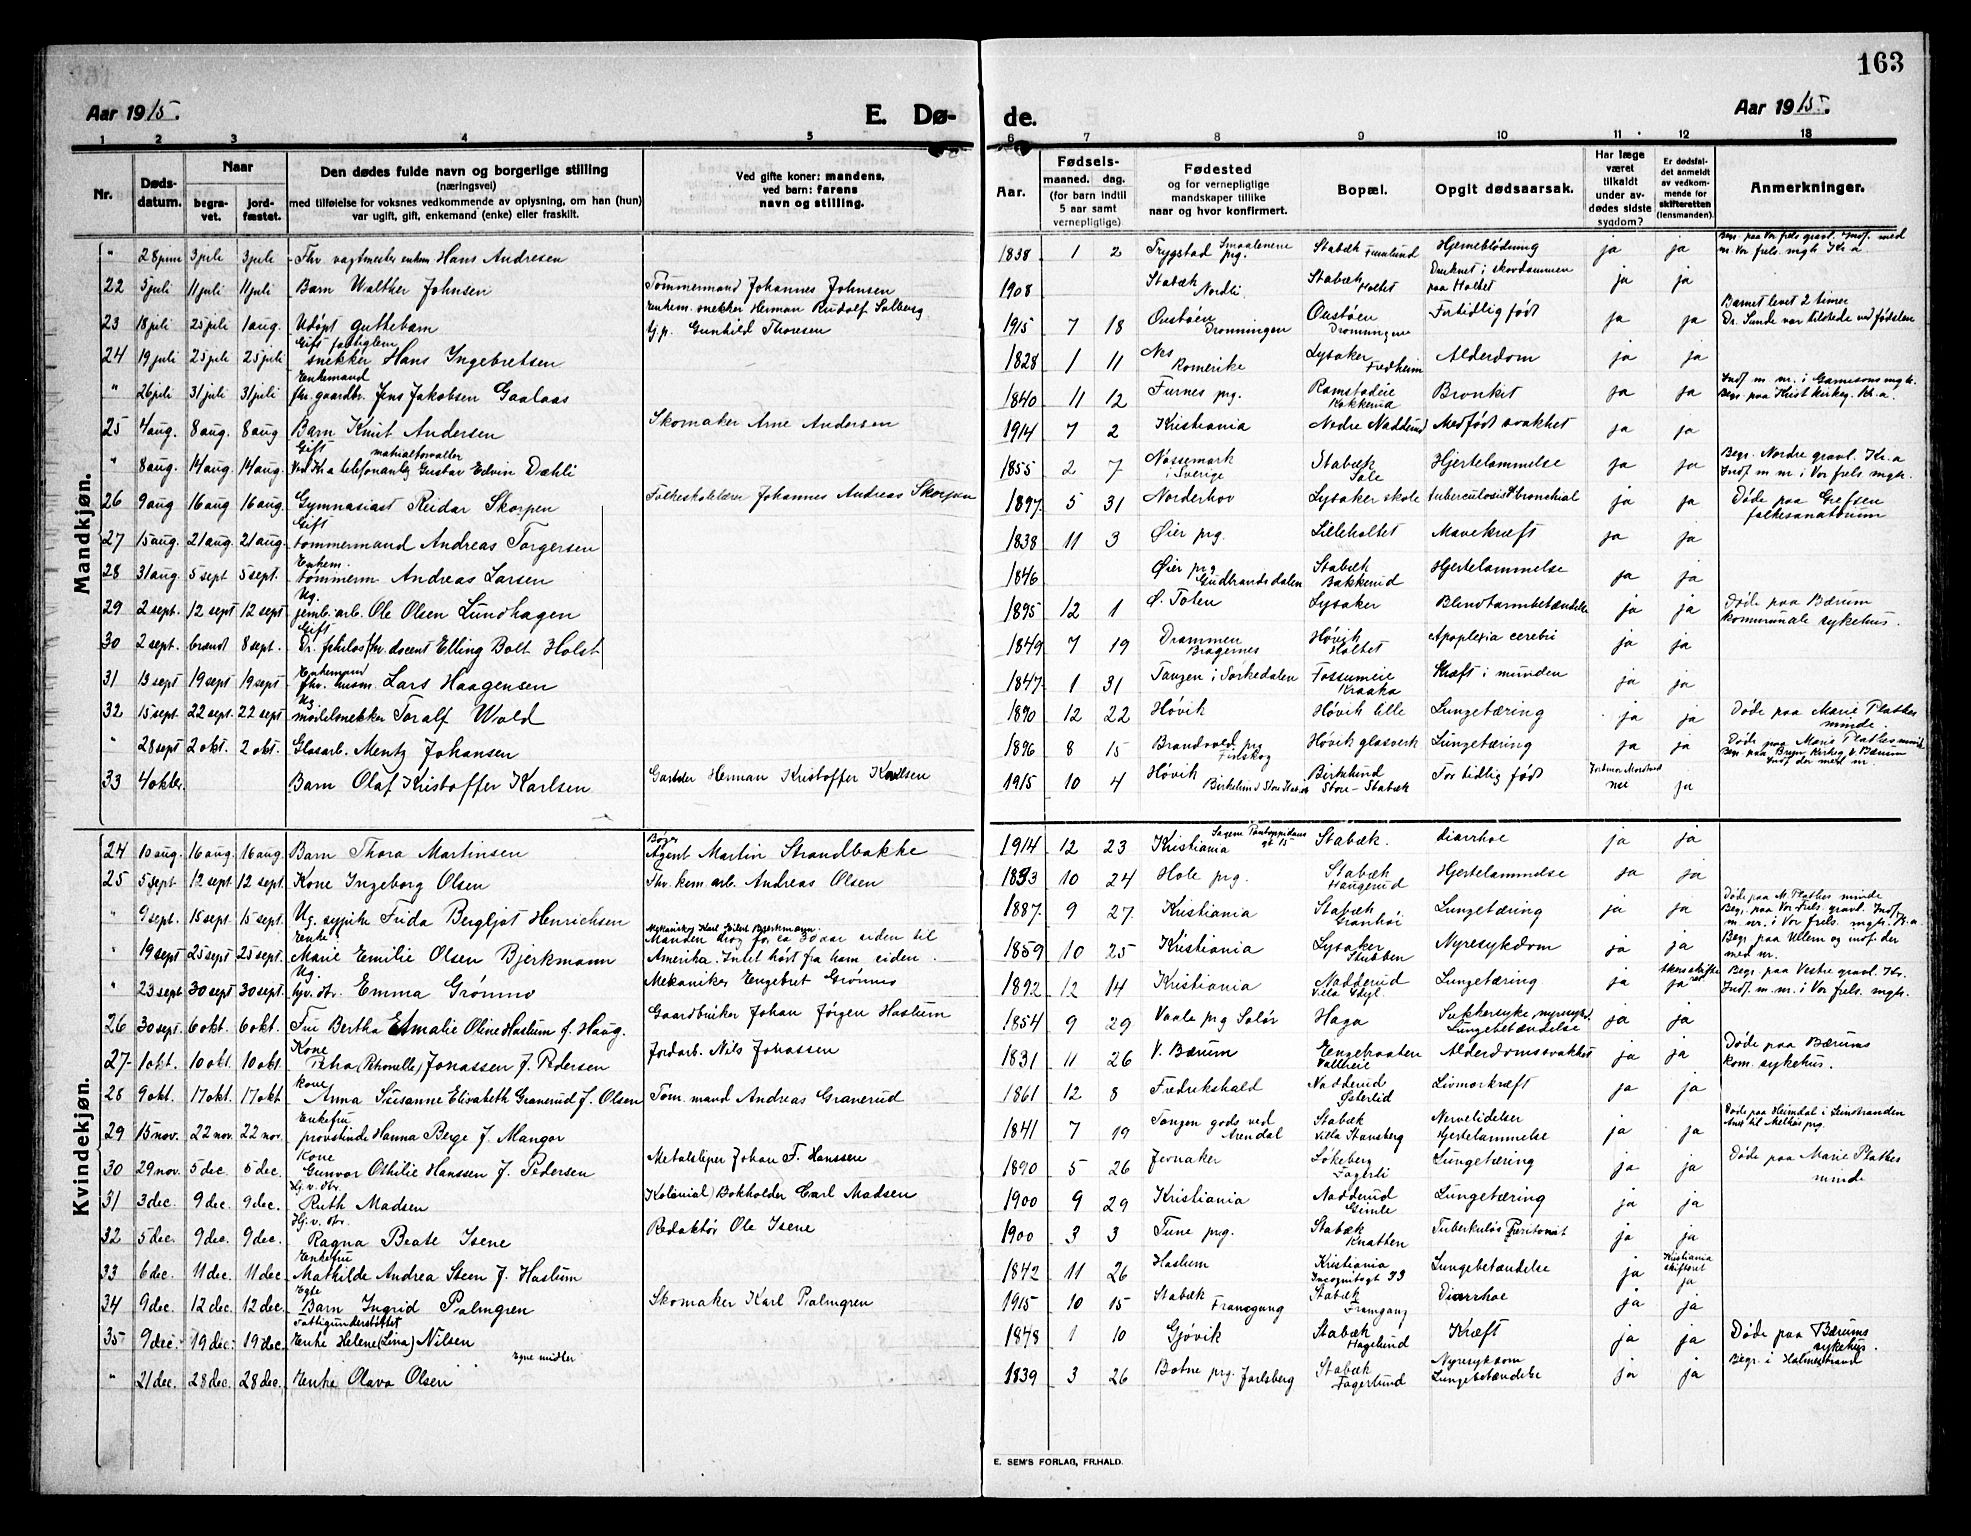 163
Aar 1915.
E. Dø-
de.
Aar 1915.
1 2 3 4 5 6 7 8 9 10 11 12 13
Nr.
Døds-
datum.
Naar
begra-
vet.
jord-
fæstet.
Den dødes fulde navn og borgerlige stilling
(næringsvei)
med tilføielse for voksnes vedkommende av oplysning, om han (hun)
var ugift, gift, enkemand (enke) eller fraskilt.
Ved gifte koner: mandens,
ved barn: farens
navn og stilling.
Aar.
Fødsels-
maaned. dag.
(for barn indtil
5 aar samt
vernepligtige.)
Fødested
og for vernepligtige
mandskaper tillike
naar og hvor konfirmert.
Bopæl.
Opgit dødsaarsak.
Har læge
været
tilkaldt
under av-
dødes sidste
sygdom?
Er dødsfal-
det anmeldt
av vedkom-
mende for
skifteretten
(lensmanden).
Anmerkninger.
Mandkjøn.
" 28 juni 3 juli 3 juli Fhv. vagtmester enkem Hans Andresen 1838 1 2 Trygstad prg. Smaalenene Stabæk Furulund Hjerneblødning ja ja Begr. paa Vor frels gravl. Indf. med nr. Vor frels. mgh. Kr.a
22 5 juli 11 juli 11 juli Barn Walther Johnsen Tømmermand Johannes Johnsen 1908 Stabæk Nordli Stabæk Holtet Druknet i skordammen paa Holtet ja ja
23 18 juli 25 juli 1 aug. Udøpt guttebarn Enkem. snekker Herman Rudolf Solberg Tj.p. Gunhild Thoresen 1915 7 18 Oustøen Dronningen Oustøen Dronningene Fortidlig født ja ja Barnet levet 2 timer Dr. Sunde var tilstede ved fødselen
24 19 juli 25 juli 25 juli Gift fattiglem snekker Hans Ingebretsen 1828 1 11 Nes Romerike Lysaker Fredheim Alderdom ja ja
" 26 juli 31 juli 31 juli Enkemand fhv. gaardbr. Jens Jakobsen Gaalaas 1840 11 12 Furnes prg. Ramstadeie Bronkit ja ja Indf m nr. i Garnisons mgh. Begr. paa Krist kirkeg. Kr.a.
25 4 aug. 8 aug. 8 aug Barn Knut Andersen Skomaker Arne Andersen 1914 7 2 Kristiania Nedre Nadderud Medfødt svakhet ja ja
" 8 aug. 14 aug. 14 aug. Gift materialforvalter Ved Kr.a telefonanlæg Gustav Edvin Dæhli 1855 2 7 Nøssemark i Sverige Stabæk Sole Hjertelammelse ja ja Begr. Nordre gravl. Kr.a Indf m nr. i Vor frels. mgh.
26 9 aug 16 aug 16 aug. Gymnasiast Reidar Skorpen Folkeskolelærer Johannes Andreas Skorpen 1897 5 31 Norderhov Lysaker skole tuberculosis bronchial ja ja Døde paa Grefsen folkesanatorium
27 15 aug. 21 aug. 21 aug. Gift tømmermand Andreas Torgersen 1838 11 3 Øier prg. Lilleholtet Mavekræft ja ja
28 31 aug. 5 sept 5 sept. Enkem. tømmerm Andreas Larsen 1846 Øier prg Gudbrandsdalen Stabæk Bakkerud Hjertelammelse ja ja
29 2 sept. 12 sept 12 sept Ug. jernb. arb. Ole Olsen Lundhagen 1895 12 1 Ø. Toten Lysaker Blindtarmbetændelse ja ja Døde paa Bærum kommunale sykehus.
30 2 sept. brændt 8 sept. Gift Dr. philos fhv. docent Elling Bolt Holst 1849 7 19 Drammen Bragernes Høvik Holtet Apoplexia cerebri ja ja
31 13 sept 19 sept 19 sept Enkemand fhv. husm. Lars Haagensen 1847 1 31 Tangen i Sørkedalen Fossumeie Kraaka Kræft i munden ja ja
32 15 sept. 22 sept. 22 sept Ug. modelsnekker Toralf Wold 1890 12 22 Høvik Høvik lille Lungetæring ja ja Døde paa Marie Plathes minde.
" 28 sept 2 okt. 2 okt. Glasarb. Mentz Johansen 1896 8 15 Brandvold prg Finskog Høvik glasverk Lungetæring ja ja Døde paa Marie Plathes minde Begr. paa Bryn Kirkeg. V. Bærum Indf der med nr.
33 4 okter. Barn Olaf Kristoffer Karlsen Gartner Herman Kristoffer Karlsen 1915 10 4 Høvik Birkelund Store Stabæk Birkelund Store-Stabæk For tidlig født nei ja
Kvindekjøn.
24 10 aug. 16 aug. 16 aug. Barn Thora Martinsen Agent Martin Strandbakke 1914 12 23 Kristiania Sagene Pontoppidans gt 15 Stabæk. diarrhoe ja ja
25 5 sept 12 sept 12 sept. Kone Ingeborg Olsen Fhv. kem. arb. Andreas Olsen 1833 10 24 Hole prg. Stabæk Haugerud Hjertelammelse ja ja
" 9 sept. 15 sept. 15 sept. Ug. sypike Frida Bergljot Henrichsen 1887 9 27 Kristiania Stabæk Granhøi Lungetæring ja ja Døde paa M. Plathes minde Beg. paa Vor Frels. gravl. Indf. m. nr. i Vor frels. mgh. Kr.a
" 19 sept 25 sept 25 sept. Enke Marie Emilie Olsen Bjerkmann Mekaniker Karl Eilert Bjerkmann. Manden drog for ca 30 aar siden til Amerika. Intet hørt fra ham siden. 1859 10 25 Kristiania Lysaker Stubben Nyresykdom ja ja Begr. paa Ullern og indf. der med nr.
" 23 sept 30 sept 30 sept. Ug. hjv. dtr. Emma Grønmo Mekaniker Engebret Grønmo 1892 12 14 Kristiania Nadderud Villa Idyl. Lungetæring ja ja Begr. paa Vestre gravl. Kr. Indf. m. nr. i Vor frels. mgh.
26 30 sept. 6 okt. 6 okt. Fru Bertha Amalie Oline Haslum f. Haug. Gaardbruker Johan Jørgen Haslum 1854 9 29 Vaale prg Solør Haga Sukkersyke nyresykd. Lungebetændelse ja ja
27 1 okt. 10 okt. 10 okt. Kone Petra (Petronelle) Jonassen f. Pedersen Jordarb. Nils Johassen 1831 11 26 V. Bærum Engehaaten Valleeie Alderdomssvakhet ja ja Døde paa Bærums kom. sykehus.
28 9 okt. 17 okt. 17 okt Kone Anna Susanne Elisabeth Graverud f. Olsen Tøm. mand Andreas Graverud 1861 12 8 Fredrikshald Nadderud Østerlid Livmorkræft ja ja
29 15 nov. 22 nov. 22 nov. Enkefru provstinde Hanna Berge f. Mangor 1841 7 19 Tangen gods ved Arendal Stabæk Villa Stansberg Nervelidelser Hjertelammelse ja ja Døde paa Heimdal i Leinstranden Anst til Melhus prg.
30 29 nov. 5 dec. 5 dec. Kone Gunvor Othilie Hanssen f. Pedersen Metalsliper Johan F. Hanssen 1890 5 26 Jevnaker Løkeberg Fagerli Lungetæring ja ja Døde paa Marie Plathes minde
31 3 dec. 9 dec. 9 dec. Hj. v. dtr. Ruth Madsen (Kolonial) Bokholder Carl Madsen 1900 9 29 Kristiania Nadderud Gimle Lungetæring ja ja
32 5 dec. 9 dec. 9 dec. Hj. v. dtr. Ragna Beate Isene Redaktør Ole Isene 1900 3 3 Tune prg. Stabæk Knatten Tuberkuløs Peritonit ja ja
33 6 dec. 11 dec. 11 dec Enkefru Mathilde Andrea Steen f. Haslum 1842 11 26 Haslum Kristiania Incognitogt 33 Lungebetændelse ja Kristiania skifteret ja
34 9 dec. 12 dec. 12 dec. Egte Barn Ingrid Palmgren Skomaker Karl Palmgren 1915 10 15 Stabæk Framgang Stabæk Framgang Diarrhoe ja ja
35 9 dec. 19 dec. 19 dec. Fattigunderstøttet Enke Helene (Lina) Nilsen 1848 1 10 Gjøvik Stabæk Hagelund Kræft ja ja Døde paa Bærums sykehus.
" 21 dec. 28 dec. 28 dec. Enke Olava Olsen Egne midler 1839 3 26 Botne prg. Jarlsberg Stabæk Fagerlund Nyresykdom Lungebetændelse ja ja Begr. i Holmestrand
E. SEM'S FORLAG, FR.HALD.